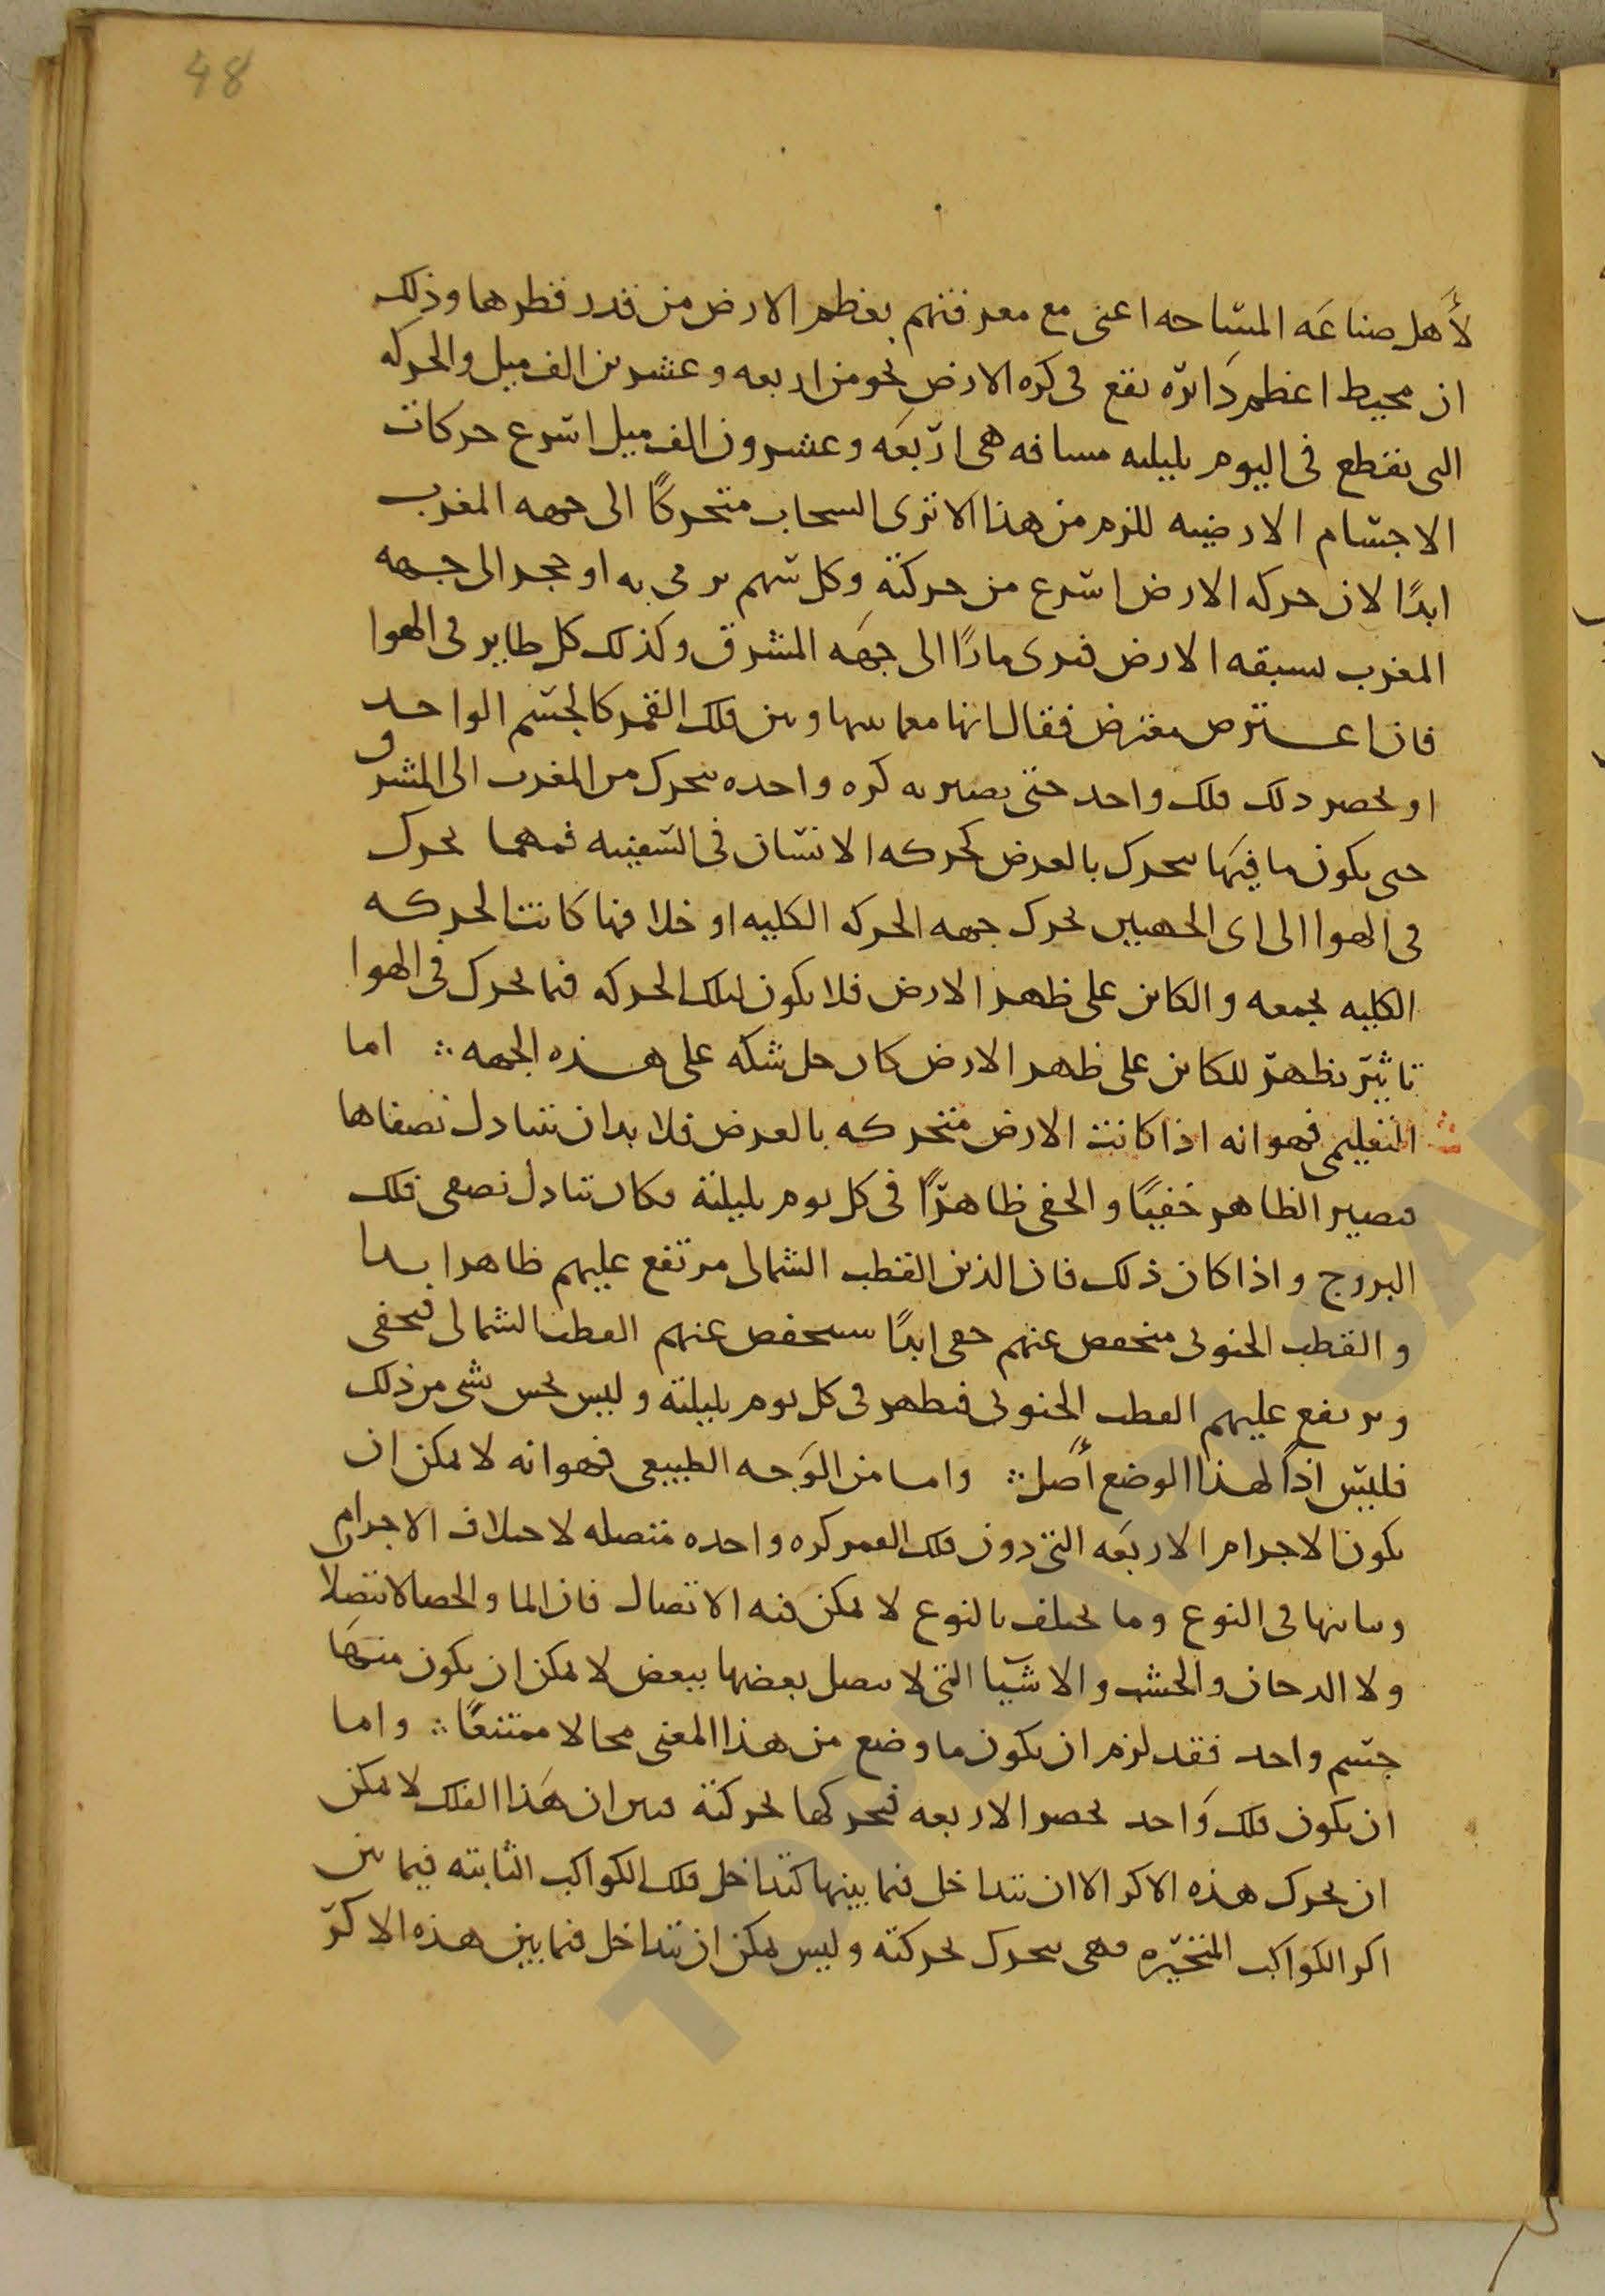 48
لأهل صناعه المساحه اعنى مع معرفتهم بعظم الارض من قدر قطرها وذلك
ان محيط اعظم دائره تقع فى كره الارض نحو من اربعه وعشرين الف ميل والحركه
التى تقطع فى اليوم بليلته مسافه هى اربعه وعشرون الف ميل اسرع حركات
الاجسام الارضيه للزم من هذا الا ترى السحاب متحركًا الى جهه المغرب
ابدًا لان حركه الارض اسرع من حركته وكل سهم يرمى به او حجر الى جهه
المغرب تسبقه الارض فيرى مارًا الى جهه المشرق وكذلك كل طاير فى الهوا
فان اعترض معترض فقال انها معا بينها وبين فلك القمر كالجسم الواحد
او يحصر ذلك فلك واحد حتى يصير به كره واحده يتحرك من المغرب الى المشرق
حتى يكون ما فيها يتحرك بالعرض كحركه الانسان فى السفينه فمهما يحرك
فى الهوا الى اى الجهتين يحرك جهه الحركه الكليه او خلافها كانت الحركه
الكليه يجمعه والكاين على ظهر الارض فلا يكون لتلك الحركه فيما يحرك فى الهوا
تاثير يظهر للكاين على ظهر الارض كان حل شكه على هذه الجهه ؞ اما
التعليمى فهو انه اذا كانت الارض متحركه بالعرض فلا بد ان يتبادل نصفاها
فيصير الظاهر خفيًا والخفى ظاهرًا فى كل يوم بليلته مكان تبادل نصفى فلك
البروج واذا كان ذلك فان الذين القطب الشمالى مرتفع عليهم ظاهر ابدا
والقطب الجنوبى منخفض عنهم خفى ابدًا سينخفض عنهم القطب الشمالى فيخفى
ويرتفع عليهم القطب الجنوبى فيظهر فى كل يوم بليلته وليس يحس بشى من ذلك
فليس اذًا لهذا الوضع أصل ؞ واما من الوجه الطبيعى فهو انه لا يمكن ان
يكون الاجرام الاربعه التى دون فلك القمر كره واحده متصله لاختلاف الاجرام
وتباينها فى النوع وما يختلف بالنوع لا يمكن فيه الاتصال فان الما والحصا لا يتصلا
ولا الدخان والخشب والاشيا التى لا يتصل بعضها ببعض لا يمكن ان يكون منها
جسم واحد فقد لزم ان يكون ما وضع من هذا المعنى محالا ممتنعًا ؞ واما
ان يكون فلك واحد يحصر الاربعه فيحركها بحركته فبين ان هذا الفلك لا يمكن
ان يحرك هذه الاكر الا ان يتداخل فيما بينها كتداخل فلك الكواكب الثابته فيما بين
اكر الكواكب المتحيره فهى يتحرك بحركته وليس يمكن ان يتداخل فيما بين هذه الاكر
TOPKAPI SARA